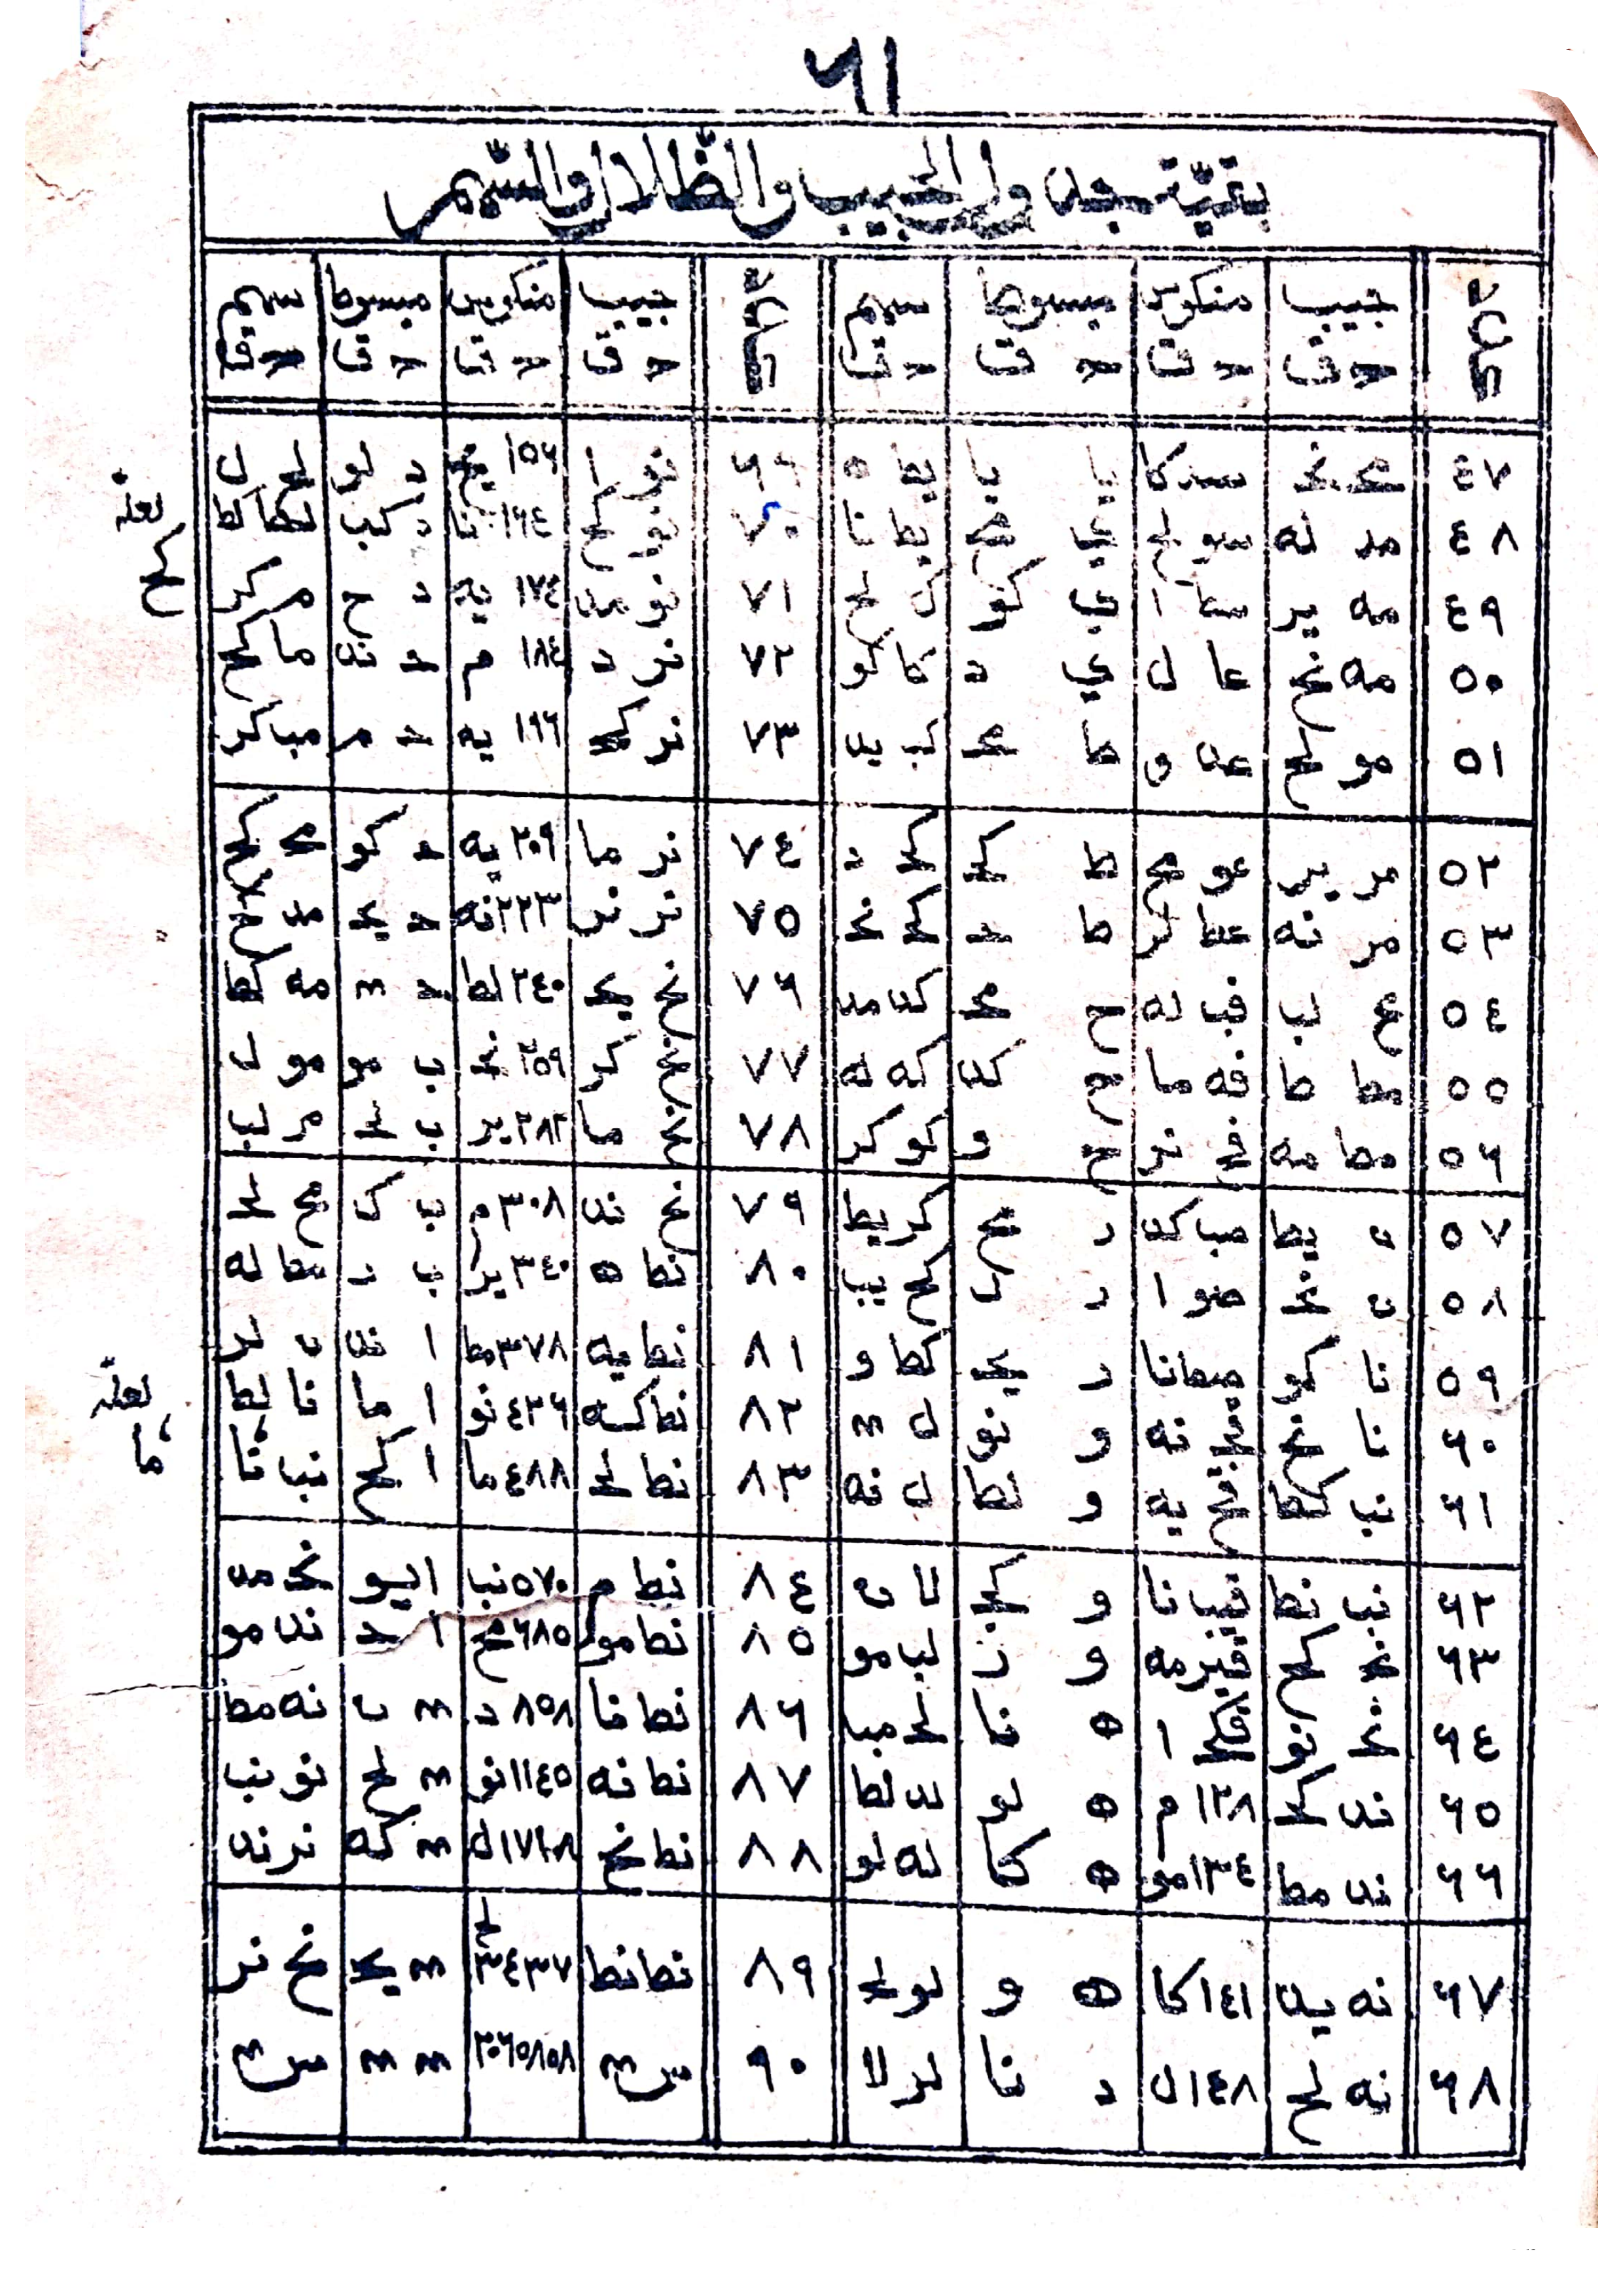 ٦١
بقيّة جدول الجيب والظّلال والسّهم
جيب منكوس مبسوط سهم جيب منكوس مبسوط سهم
٤٧ مح نح سد كا يا يا يط ه ٦٩ نو ا ١٥٦ يح د لو لح ل
٤٨ مد له سو لح ي مح يط نا ٧٠ نو كح ١٦٤ نا د كب لط كط
٤٩ مه يز سط ا ي كو ك لح ٧١ نو مد ١٧٤ يه د ح م كز
٥٠ مه نح عا ل ي د كا كو ٧٢ نز د ١٨٤ م ح ند ما كح
٥١ مو لح عد و ط مح كب يد ٧٣ نز كح ١٩٦ يه ح م مب كز
٥٢ مز يز عو مح ط كح كح د ٧٤ نز ما ٢٠٩ يه ح كو مح كح
٥٣ مز نه عط لز ط ح كح نح ٧٥ نز نز ٢٢٣ نه ح يح مد كح
٥٤ مح لب فب له ح مح كد مد ٧٦ نح يح ٢٤٠ لط ح ٠ مه كط
٥٥ مط ط فه ما ح كد كه له ٧٧ نح كز ٢٥٩ نح ب مو مو ل
٥٦ مط مه فح نز ح و كو كز ٧٨ نح ما ٢٨٢ يز ب لح مز لب
٥٧ ن يط صب كد ز مح كز يط ٧٩ نح ند ٣٠٨ م ب ك مح لح
٥٨ ن نح صو ا ز ل كح يب ٨٠ نط ه ٣٤٠ يز ب ز مط له
٥٩ نا كو صط نا ز يح كط و ٨١ نط يه ٣٧٨ مط ا ند ن لز
٦٠ نا نح قح نه و نو ل ٠ ٨٢ نط كه ٤٢٦ نو ا ما نا لط
٦١ نب كط قح يه و لط ل نه ٨٣ نط لح ٤٨٨ ما ا كح نب نا
٦٢ نب نط قيب نا و كح لا ن ٨٤ نط م ٥٧٠ نب ا يو نح مد
٦٣ نح كح قيز مه و ز لب مو ٨٥ نط مو ٦٨٥ مح ا ح ند مو
٦٤ نح نو قكح ا ه نا لح مب ٨٦ نط نا ٨٥٨ د ٠ ن نه مط
٦٥ ند كح ١٢٨ م ه لو لد لط ٨٧ نط نه ١١٤٥ نو ٠ لح نو نب
٦٦ ند مط ١٣٤ مو ه كا له لو ٨٨ نط نح ١٧١٨ ل ٠ كه نز ند
٦٧ نه يد ١٤١ كا ه و لو لح ٨٩ نط نط ٣٤٣٧ لح ٠ يح نح نز
٦٨ نه لح ١٤٨ ل د نا لز لا ٩٠ س ٠ ٢٠٦٥٨٥٨ ٠ ٠ س ٠
لعله
كح
لعله
ما